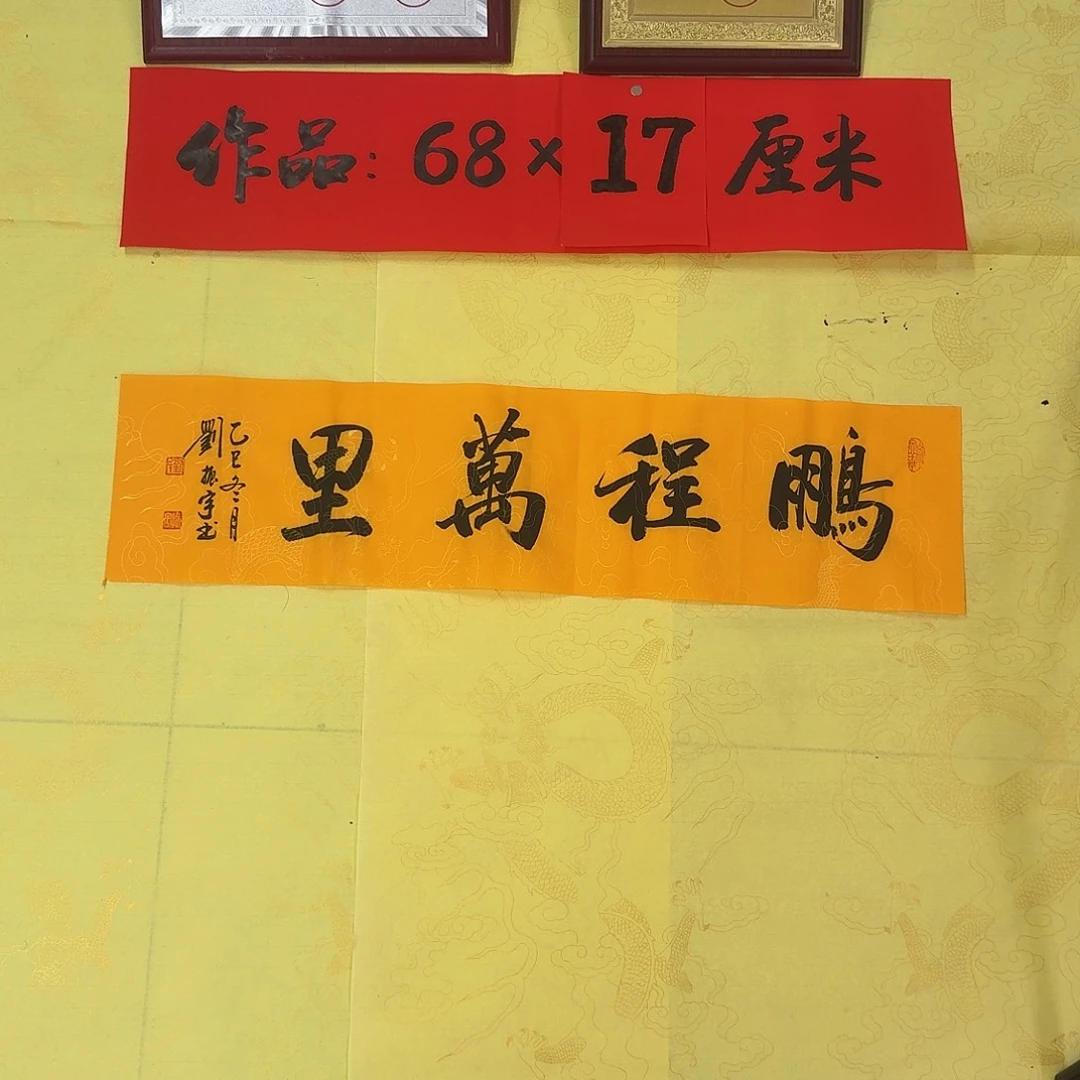 作品：68×17厘米
鵬程萬里
乙巳冬月
劉振宇书